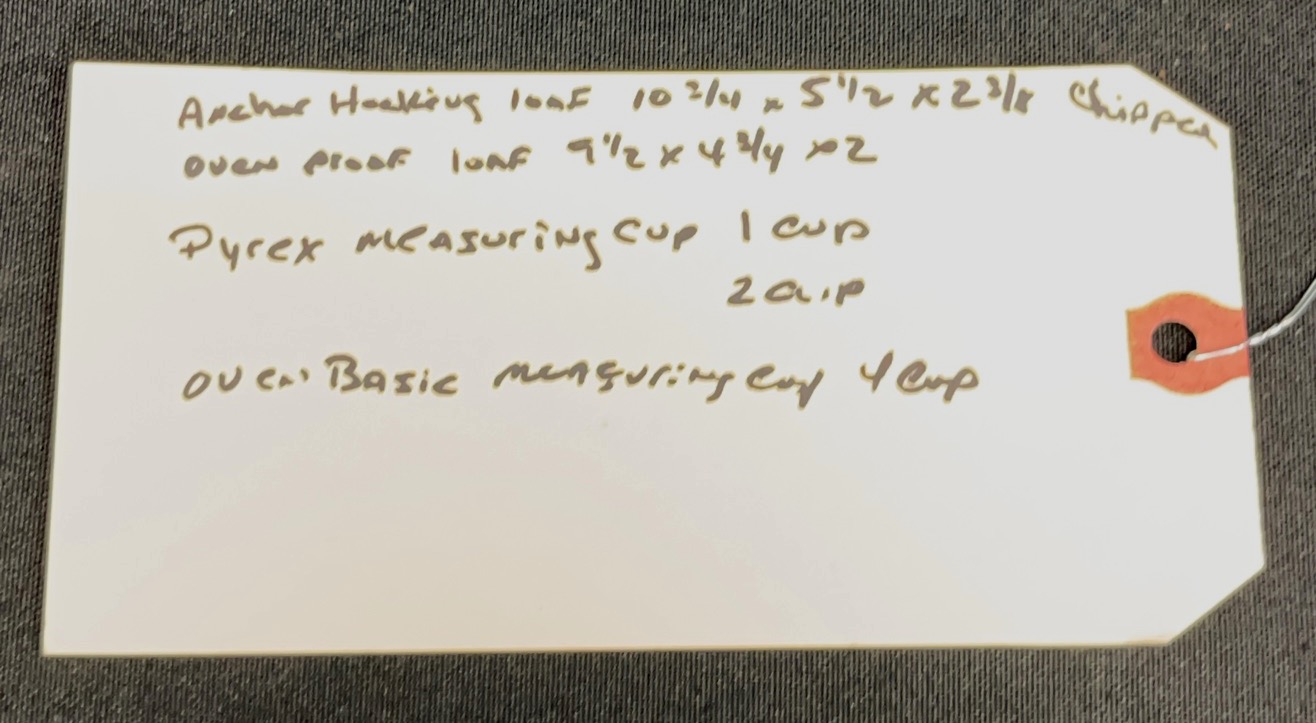 Anchor Hocking loaf 10 3/4 x 5 1/2 x 2 3/8 Chipped
oven proof loaf 9 1/2 x 4 3/4 x 2
Pyrex measuring cup 1 cup
2 cup
oven Basic measuring cup 4 cup